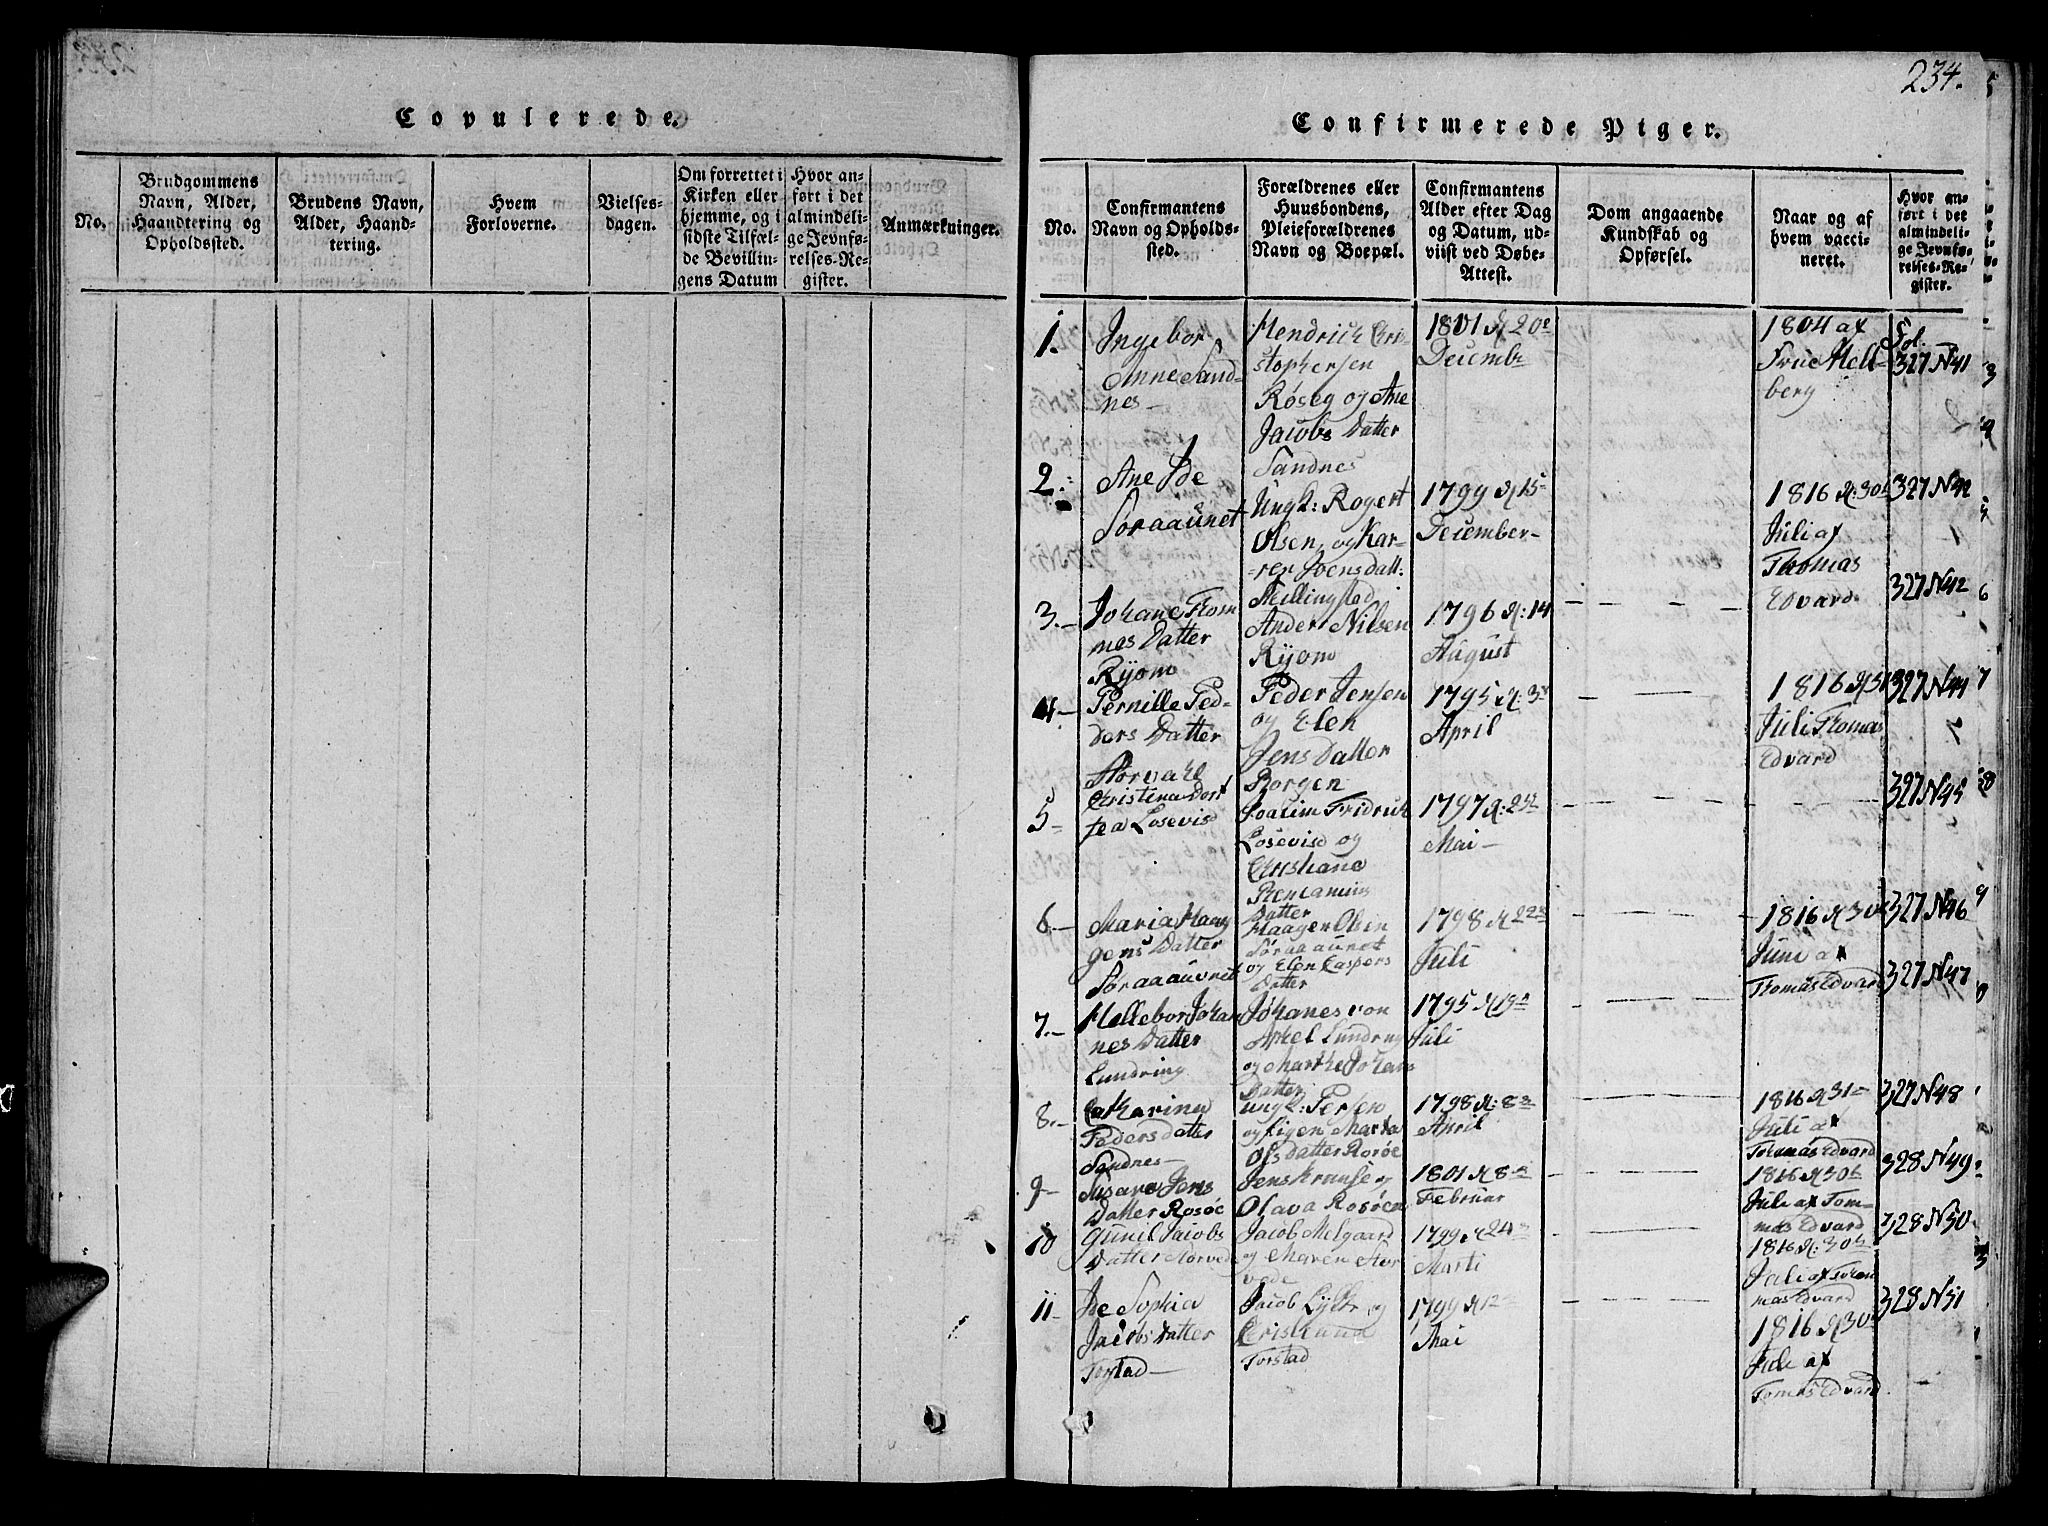 Copulerede.
No.
Brudgommens
Navn, Alder,
Haandtering og
Opholdssted.
Brudens Navn,
Alder, Haand-
tering.
Hvem
Forloverne.
Vielses-
dagen.
Om forrettet i
Kirken eller
hjemme, og i
sidste Tilfæl-
de Bevillin-
gens Datum
Hvor an-
ført i det
almindeli-
ge Jevnfø-
relses-Re-
gister.
Anmærkninger.
234.
Confirmerede Piger.
No.
Confirmantens
Navn og Opholds-
sted.
Forældrenes eller
Huusbondens,
Pleieforældrenes
Navn og Boepæl.
Confirmantens
Alder efter Dag
og Datum, ud-
viist ved Døbe-
Attest.
Dom angaaende
Kundskab og
Opførsel.
Naar og af
hvem vacci-
neret.
Hvor an-
ført i det
almindeli-
ge Jevnfø-
relses-Re-
gister.
1.
Ingebor
Anne Sand-
nes-
Hendrich Cri-
stophersen
Røseg og Ane
Jacobs Datter
Sandnes
1801 d 20e
Decembr
1804 af
Frue Mell-
berg
Fol.
327 N41
2.
Ane Ide
Søraaunet
Ungk: Rogert
Olsen, og Kar-
rer Joensdatt:
Mellingsted
1799 d 15
December-
1816 d: 30
Juli af
Thomas
Edvard
327 N42
3.-
Johane Thom
nes Datter
Ryom
Ander Nilsen
Ryom
1796 d: 14
August
327 N42
4-
Pernille Ped-
ders Datter
Størvahl
Peder Jensen
og Elen
Jens Datter
Borgen
1795 d: 3
April
1816 d 31
Juli Thomas
Edvard
327 N44
5-
Christina Dort
fea Losevisd
Joakim Fridrich
Losevisd og
Criskane
Benjamins
Datter
1797 d: 24
Mai-
327 N45
6.-
Maria Haag
gens Datter
Søraaauvnet
Haagen Olsen
Søraaaunet
og Elen Caspers
Datter
1798 d 22
Juli
1816 d 30
Juni af
Thomas Edvard
327 N46
7.-
Hellebor Johan
nes Datter
Lundring
Johanes von
Aphel Lundring
og Marthe Johans
Datter
1795 d 19
Juli
327 N47
8.-
Catharina
Peders Datter
Sandnes-
Ungk: Persen
og Pigen Marta
Ols Datter Rosøe
1798 d: 8
April
1816 d 31
Juli af
Tohmas Edvard
327 N48
9-
Susara Jens
Datter Rosøe
Jens Krunse og
Olava Rosøen
1801 d 8
Februar
1816 d 30
Juli af Tom-
mas Edvard
328 N49
10
Gunil Jacobs
Datter Størvede
Jacob Melgaard
og Maren Stør
vede
1799 d 24
Marti
1816 d: 30
Juli af Tohm
mas Edvard
328 N50
11-
Ane Sophia
Jacobs Datter
Torstad-
Jacob Lyktr og
Criskana
Torstad
1799 d 12
Mai
1816 d 30
Juli af
Tomas Edvard
328 N51